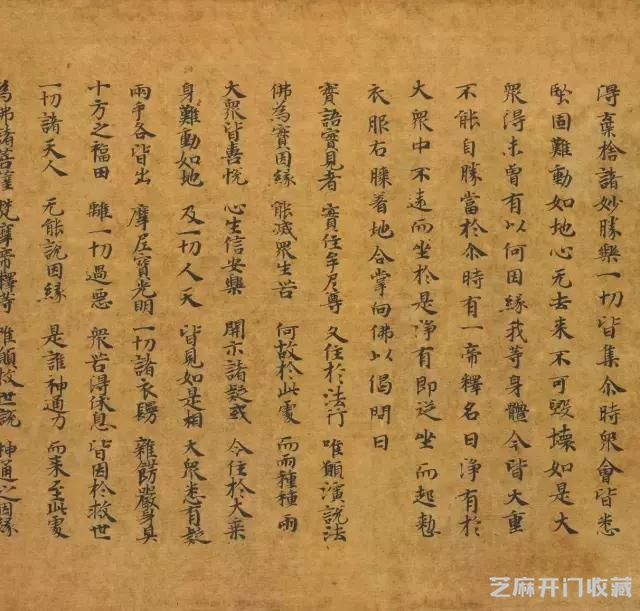 得棄捨諸妙勝樂一切皆集尒時眾會皆悉
堅固難動如地心无去来不可毀壞如是大
眾得未曾有以何因緣我等身體今皆大重
不能自勝當於尒時有一帝釋名曰淨有於
大眾中不遠而坐於是淨有即従坐而起懃
衣服右膝着地合掌向佛以偈問曰
實語實見者 實住牟尼尊 久住於法行 唯願演說法
佛為實因緣 能滅眾生苦 何故於此處 而雨種種雨
大眾皆喜悅 心生信安樂 開示諸疑或 令住於大乗
身難動如地 及一切人天 皆見如是相 大眾悉有疑
兩手各皆出 摩尼寶光明 一切諸衣瓔 雜飾嚴身具
十方之福田 離一切過惡 眾苦得休息 皆因於救世
一切諸天人 无能說因緣 是誰神通力 而来至此處
為佛諸菩薩 梵摩帝釋等 唯願救世說 神通之因緣
芝麻开门收藏